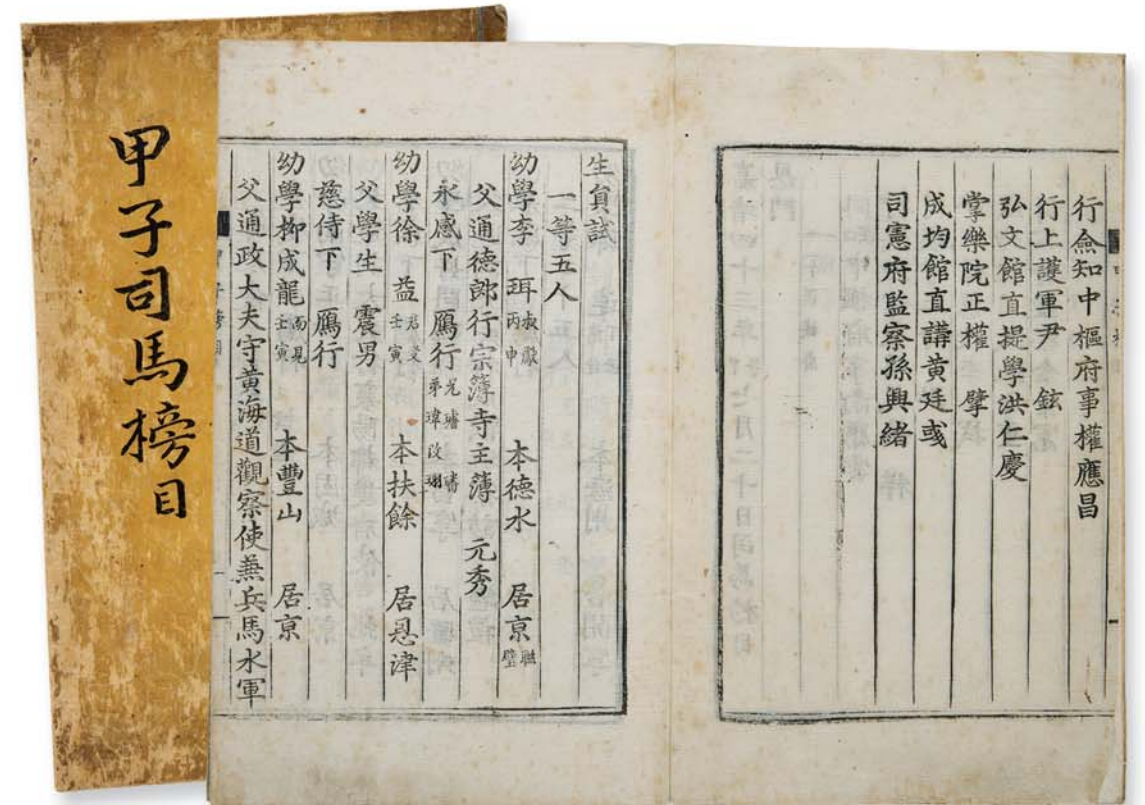 甲子司馬榜目
行僉知中樞府事權應昌
行上護軍尹 鉉
弘文館直提學洪仁慶
掌樂院正權 擘
成均館直講黃廷彧
司憲府監察孫興緒
生員試
一等五人
幼學李 珥 叔獻 丙申 本德水 居京 聯璧
父通德郎行宗簿寺主薄 元秀
永感下 鴈行 兄璠 弟瑋 改
幼學徐 益 君受 壬寅 本扶餘 居恩津
父學生 震男
慈侍下 鴈行
幼學柳成龍 而見 壬寅 本豐山 居京
父通政大夫守黃海道觀察使兼兵馬水軍